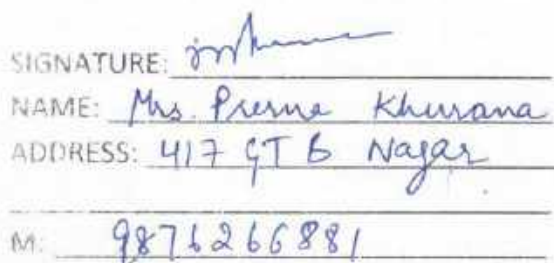 SIGNATURE:
NAME: Mrs. Prerna Khurana
ADDRESS: 417 GTB Nagar
M: 9876266881